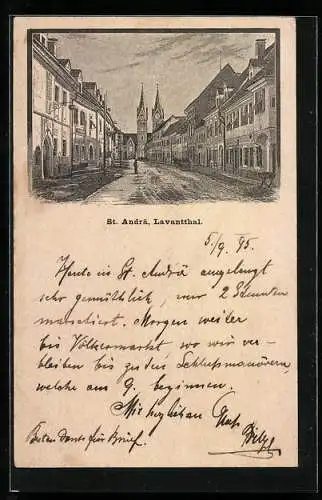 St. Andrä, Lavantthal.
5/9. 95.
Heute in St. Andrä angelangt
sehr gemüthlich, nur 2 Stunden
marschiert. Morgen weiter
bis Völkermarkt, wo wir ver-
bleiben bis zu den Schlußmanövern,
welche am 9. beginnen.
Mit herzlichem Gruß
Besten Dank für Brief.